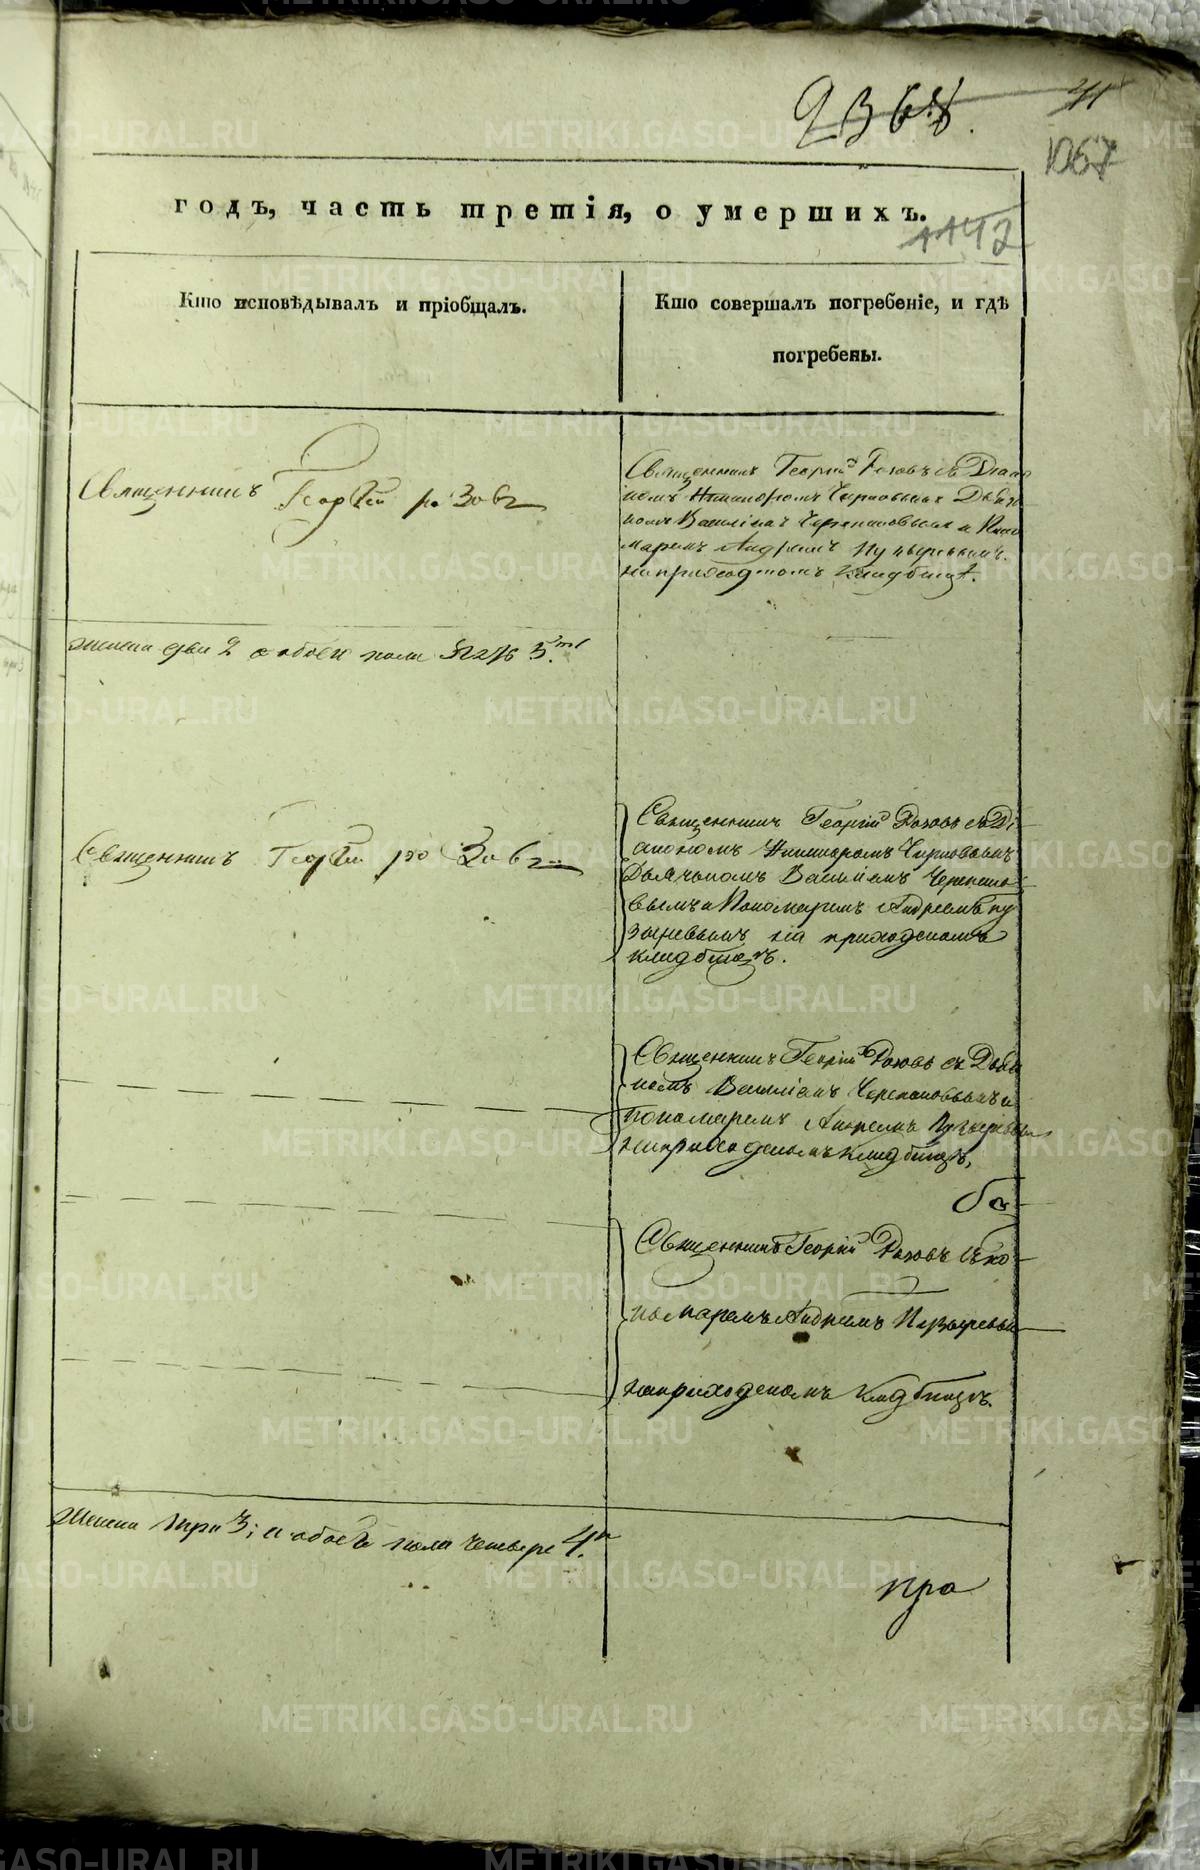 1067
1142
годъ, часть третія, о умершихъ.
Кто исповѣдывалъ и пріобщалъ.
Кто совершалъ погребеніе, и гдѣ
погребены.
Священникъ Георгій розовъ
Священникъ Георгій Розовъ съ Диако
номъ
номъ Василіемъ Черепановымъ и Поно
маремъ Андреемъ Пузыревымъ
на приходскомъ кладбищѣ.
женска два 2 а обоего пола
Священникъ Георгій розовъ
Священникъ Георгій Розовъ съ Ді
акономъ
Дьячкомъ Василіемъ Черепано
вымъ и Пономаремъ Андреемъ Пу
зыревымъ на приходскомъ
кладбищѣ.
Священникъ Георгій Розовъ съ Дьяч
комъ Василіемъ Черепановымъ и
пономаремъ Андреемъ Пузыревым
на приходскомъ кладбищѣ,
Священникъ Георгій Розовъ съ по
номаремъ Андреемъ Пузыревым
на приходскомъ кладбищѣ.
Женска три 3; а обоего пола четверо 4.
про